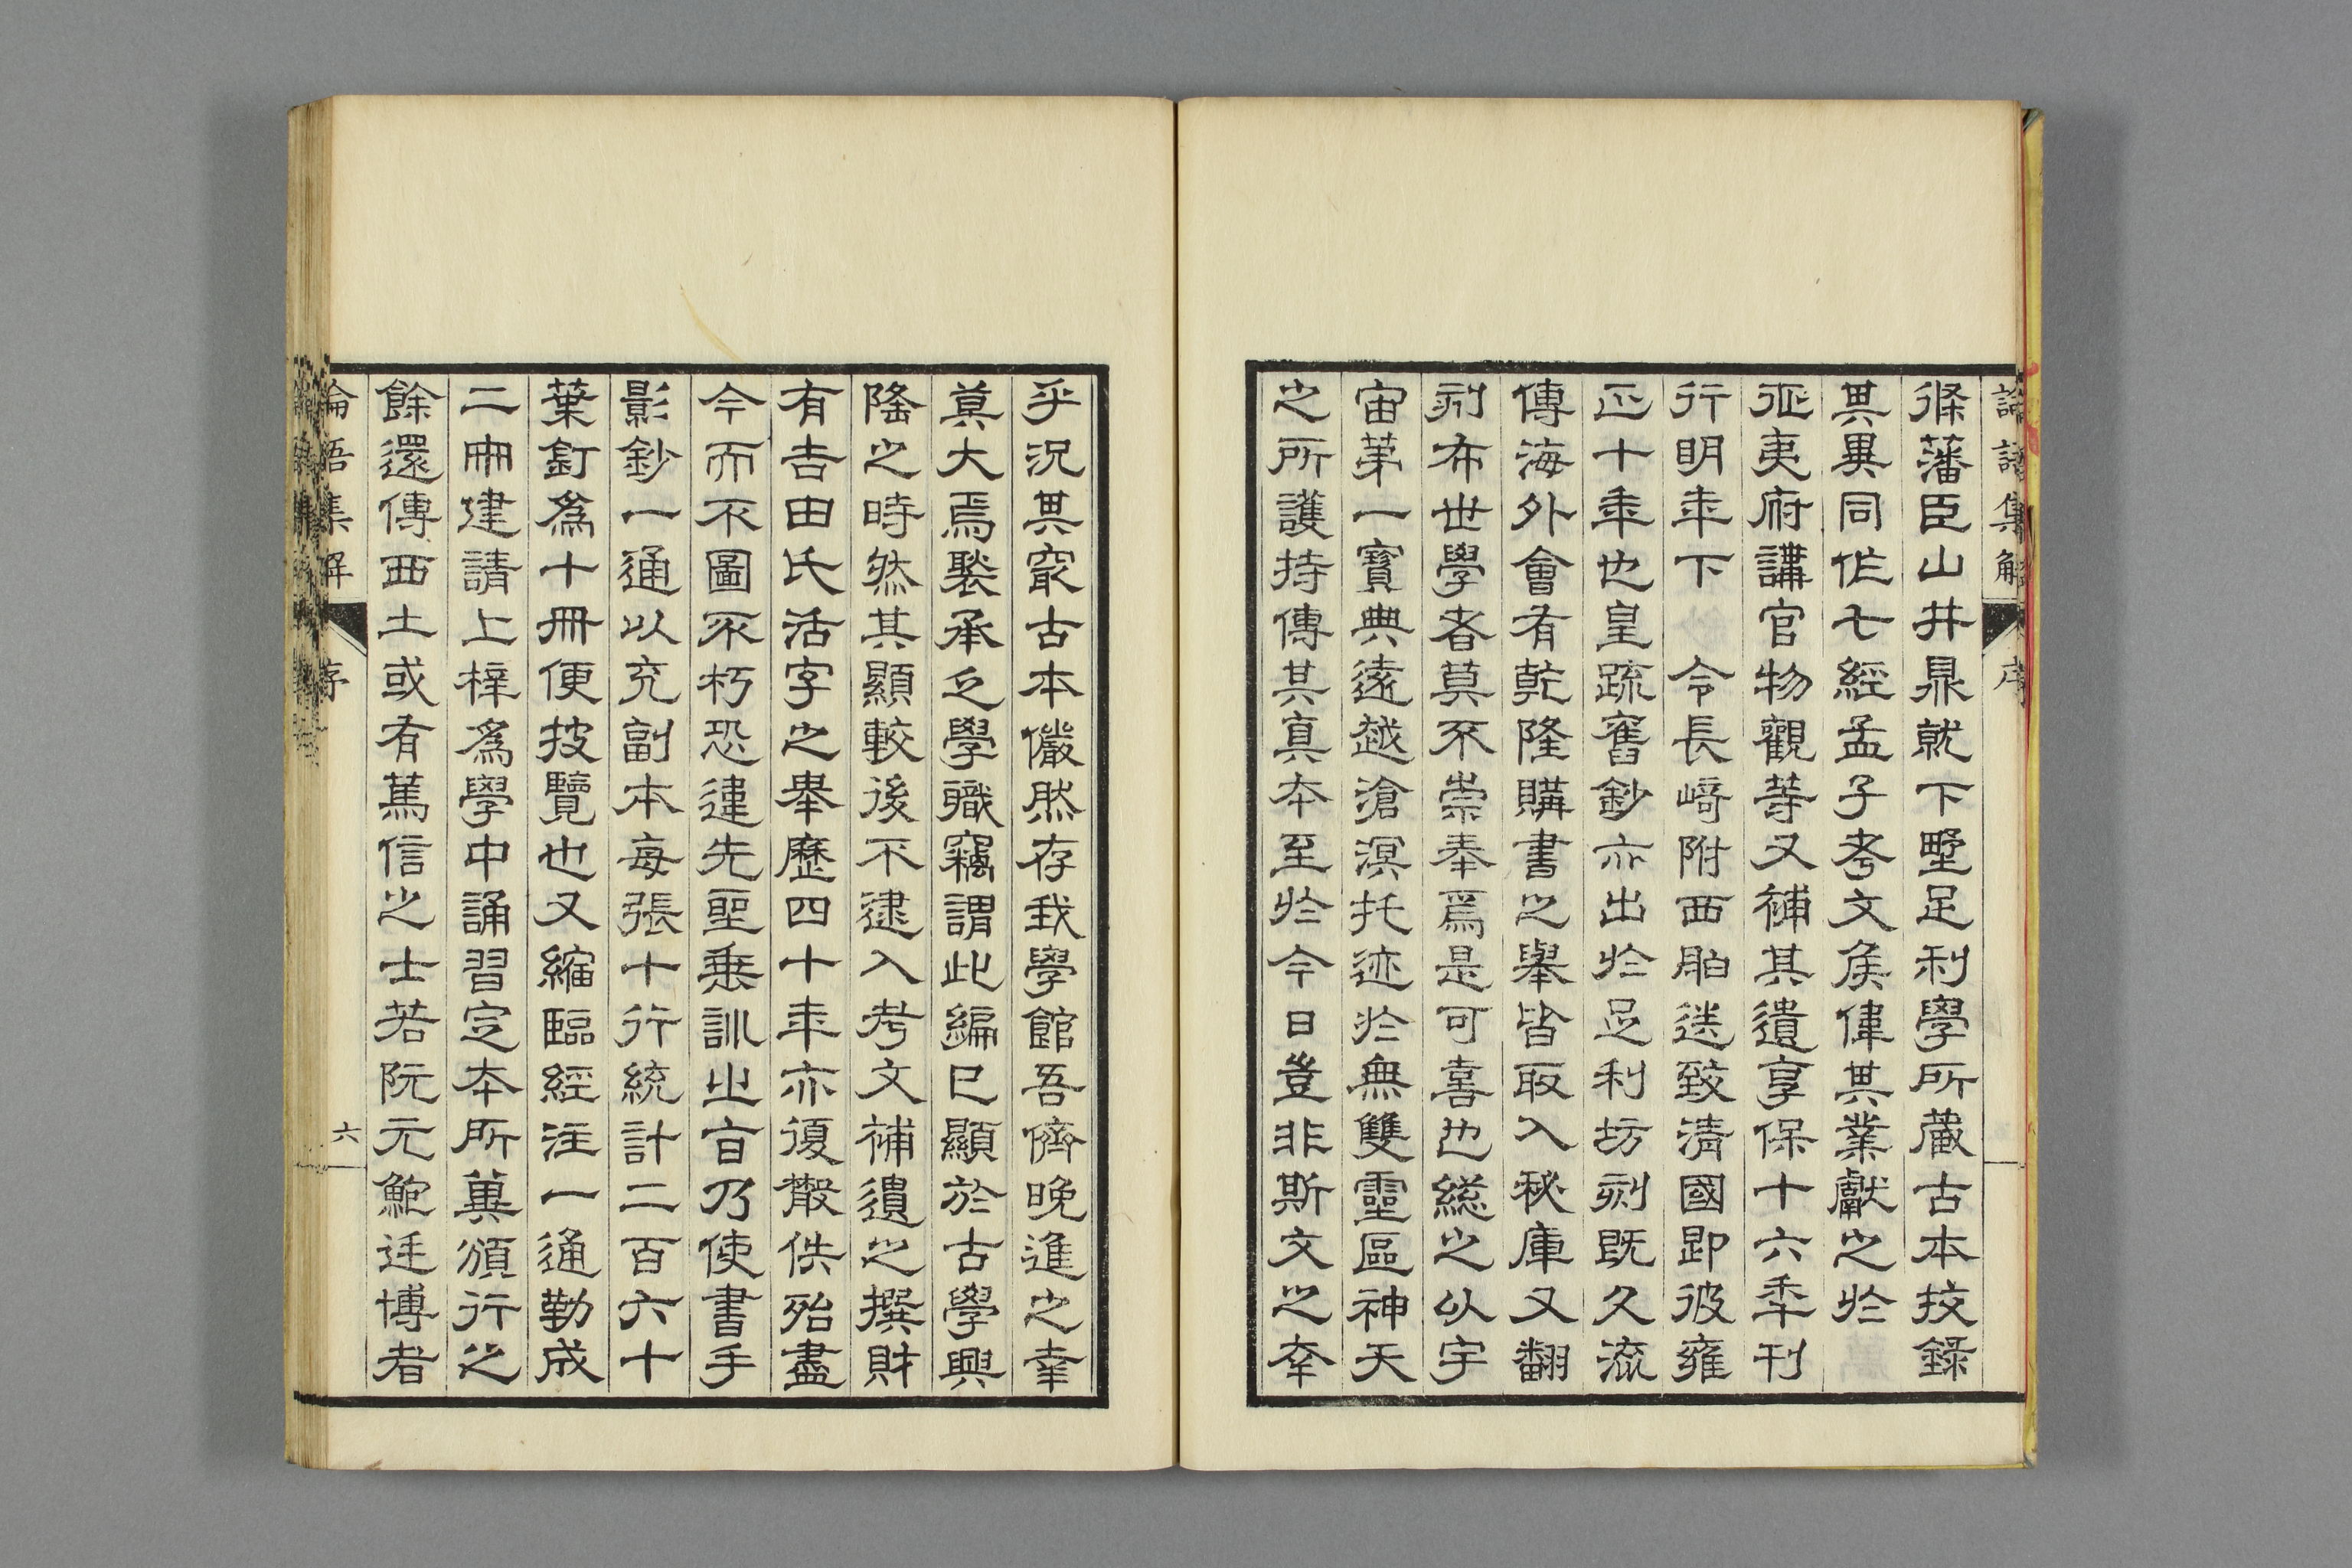 論語集解 序
條藩臣山井鼎就下墅足利學所藏古本挍錄
其異同作七經孟子考文矦偉其業獻之於
征夷府講官物觀等又補其遺享保十六年刊
行明年下 令長﨑附西舶送致清國即彼雍
正十年也皇疏舊鈔亦出於足利坊刻既久流
傳海外會有乾隆購書之舉皆取入秘庫又翻
刻布世學者莫不崇奉焉是可喜也總之以宇
宙第一寶典遠越滄溟托迹於無雙靈區神天
之所護持傳其真本至於今日豈非斯文之幸
乎況其宷古本儼然存我學館吾儕晚進之幸
莫大焉褧承乏學職竊謂此編已顯於古學興
隆之時然其顯較後不逮入考文補遺之撰財
有吉田氏活字之舉歷四十年亦復散佚殆盡
今而不圖不朽恐違先聖乗訓之旨乃使書手
影鈔一通以充副本每張十行統計二百六十
葉釘為十冊便披覽也又縮臨經注一通勒成
二冊建請上梓為學中誦習定本所冀頒行之
餘還傳西土或有篤信之士若阮元鮑廷博者
論語集解 序 六